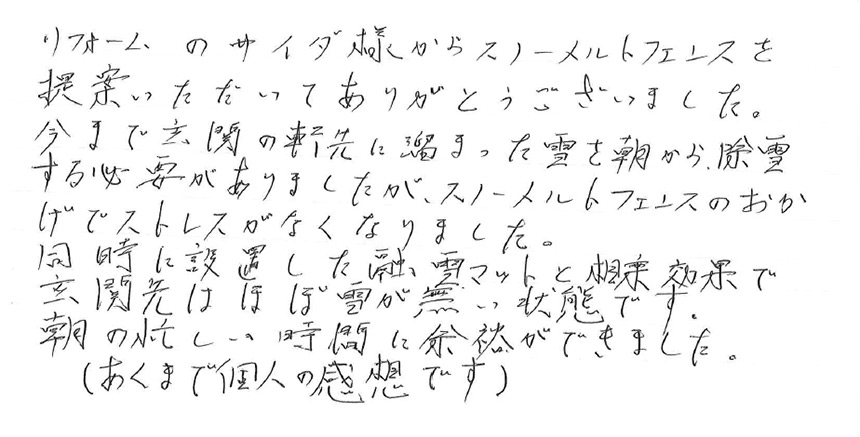 リフォームのサイダ様からスノーメルトフェンスを
提案いただいてありがとうございました。
今まで玄関の軒先に溜まった雪を朝から、除雪
する必要がありましたが、スノーメルトフェンスのおか
げでストレスがなくなりました。
同時に設置した融雪マットと相乗効果で
玄関先はほぼ雪が無い状態です。
朝の忙しい時間に余裕ができました。
(あくまで個人の感想です)